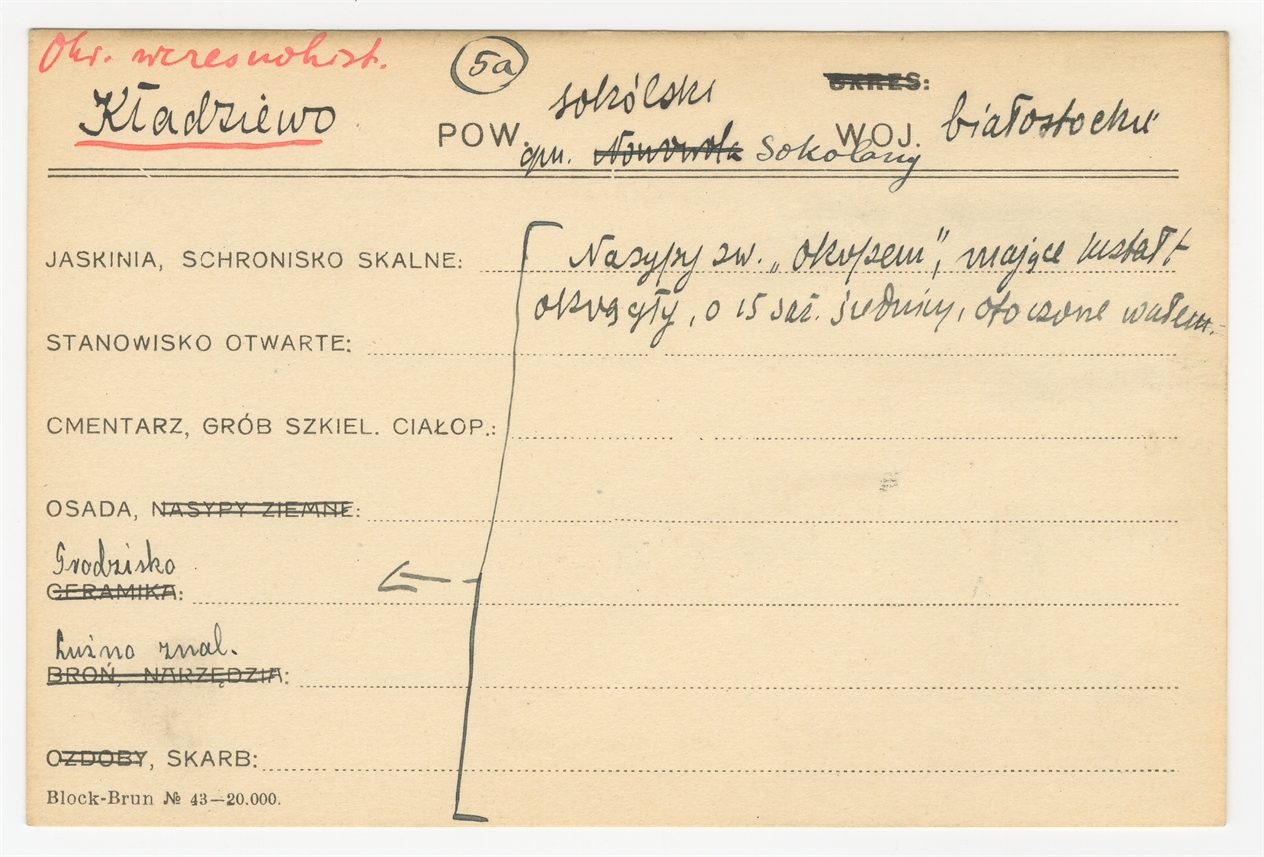 Okr. wczesnohist.
5a
Kładziewo
POW. sokólski
OKRES:
WOJ. białostockie
gm. Sokolany
JASKINIA, SCHRONISKO SKALNE:
Nasypy zw. „Okopem", mające kształt
okrągły, o 15 saż. średnicy, otoczone wałem.
STANOWISKO OTWARTE:
CMENTARZ, GRÓB SZKIEL. CIAŁOP.:
OSADA, NASYPY ZIEMNE:
Grodzisko
CERAMIKA:
Luźno znal.
BROŃ, NARZĘDZIA:
OZDOBY, SKARB:
Block-Brun № 43—20.000.